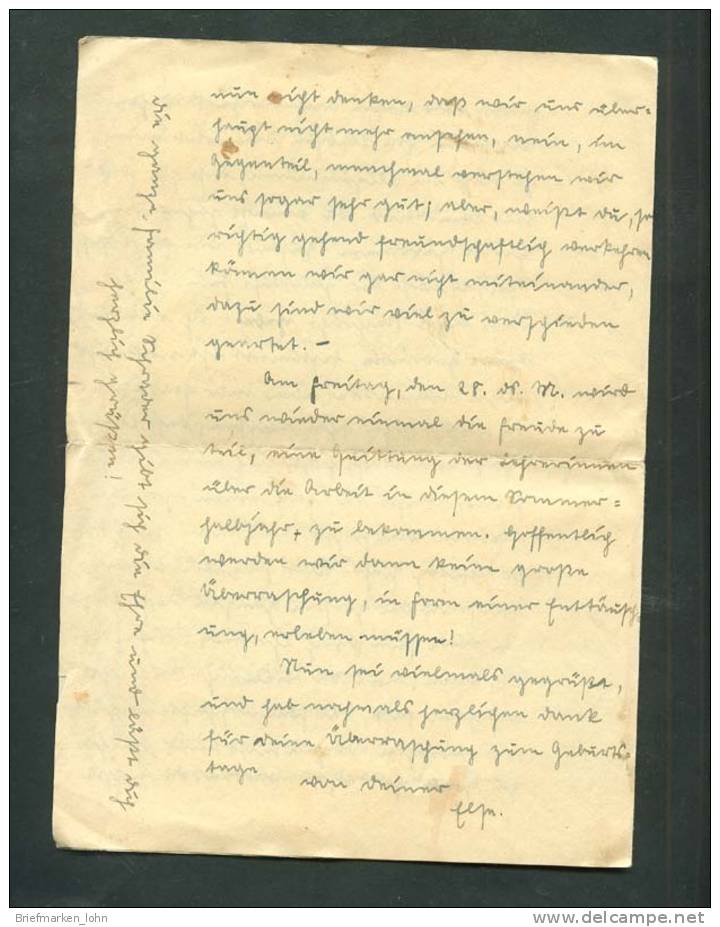 nun nicht denken, daß wir uns über-
haupt nicht mehr ansehen, nein, im
Gegenteil, manchmal verstehen wir
uns sogar sehr gut; aber, weißt du, so
richtig gehend freundschaftlich verkehren
können wir gar nicht miteinander,
dazu sind wir viel zu verschieden
geartet. –
Am Freitag, den 28. ds. M. wird
uns wieder einmal die Freude zu
teil, eine Quittung der Lehrerinnen
über die Arbeit in diesem Sommer-
halbjahr zu bekommen. Hoffentlich
werden wir dann keine große
Überraschung, in Form einer Enttäusch-
ung, erleben müssen!
Nun sei vielmals gegrüßt,
und hab nochmals herzlichen Dank
für deine Überraschung zum Geburts-
tage
von deiner
Else.
Die ganze Familie Schrader gibt sich die Ehre und läßt dich
herzlich grüßen!
Briefmarken_John
delcampe.net